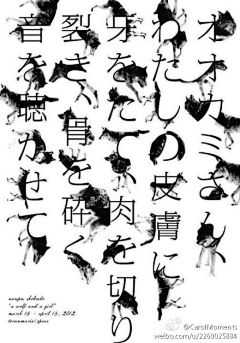 オオカミさん、
わたしの皮膚に
牙をたて、肉を切り
裂き、骨を砕く
音を聴かせて
"a wolf and a girl"
march 18 - april 18, 2012
@CarolMoments